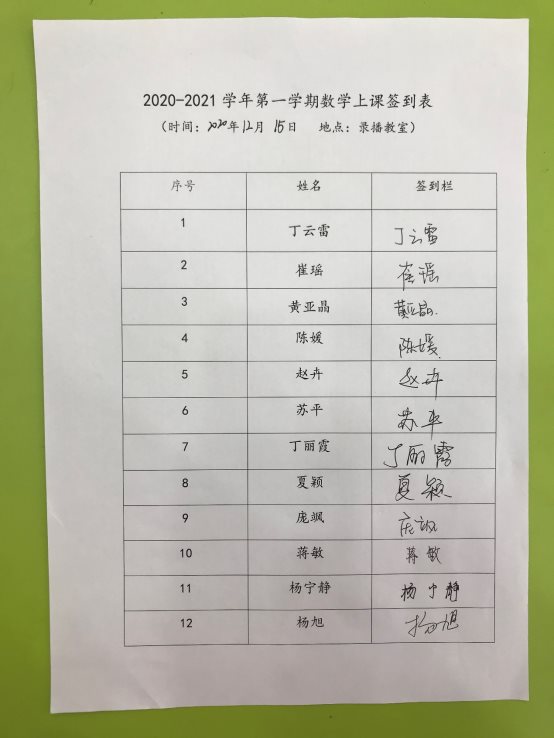 2020-2021 学年第一学期数学上课签到表
（时间：2020年12月 15日 地点：录播教室）
序号 姓名 签到栏
1 丁云雷 丁云雷
2 崔瑶 崔瑶
3 黄亚晶 黄亚晶
4 陈媛 陈媛
5 赵卉 赵卉
6 苏平 苏平
7 丁丽霞 丁丽霞
8 夏颖 夏颖
9 庞飒 庞飒
10 蒋敏 蒋敏
11 杨宁静 杨宁静
12 杨旭 杨旭